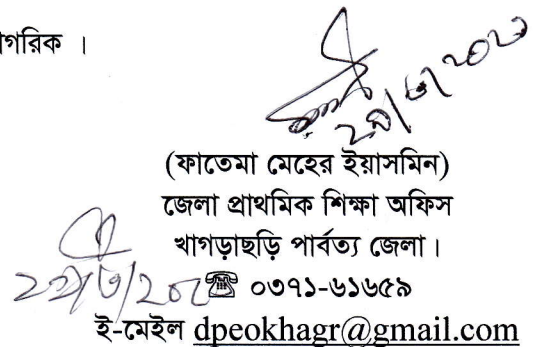 নাগরিক ।
(ফাতেমা মেহের ইয়াসমিন)
জেলা প্রাথমিক শিক্ষা অফিস
খাগড়াছড়ি পার্বত্য জেলা।
☎ ০৩৭১-৬১৬৫৯
ই-মেইল dpeokhagr@gmail.com